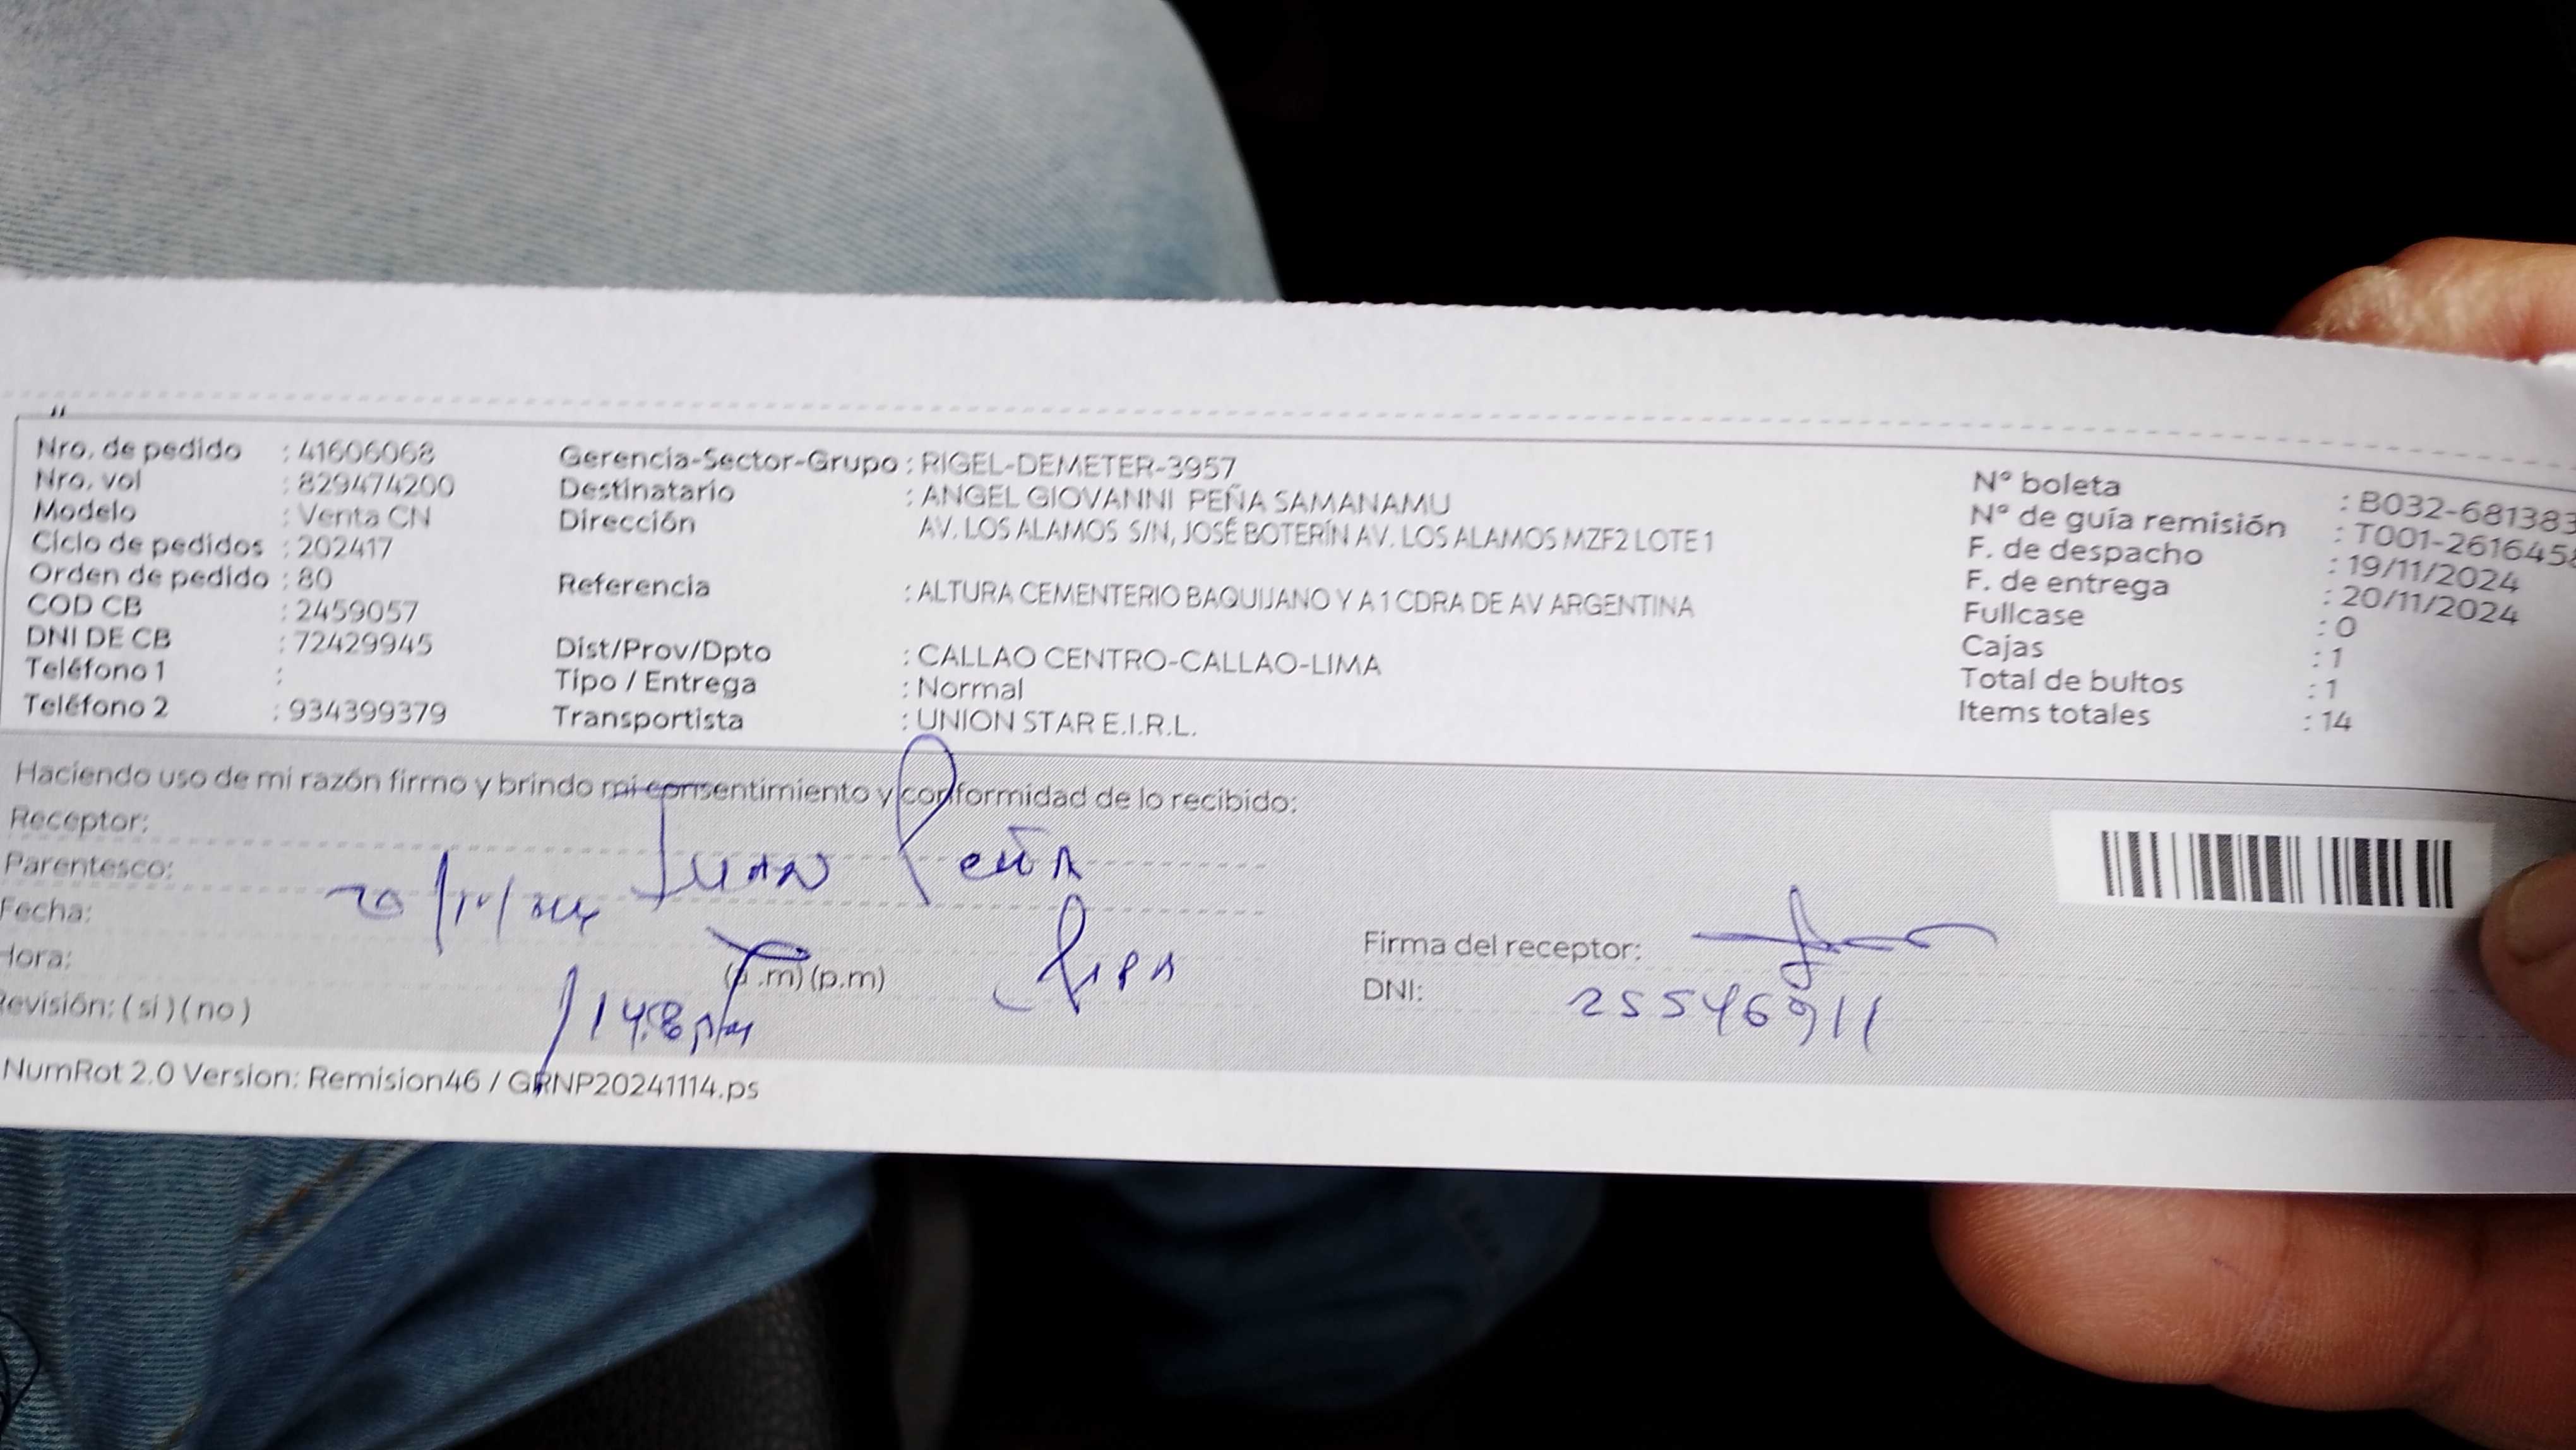 Nro. de pedido : 41606068
Nro. vol : 829474200
Modelo : Venta CN
Ciclo de pedidos : 202417
Orden de pedido : 80
COD CB : 2459057
DNI DE CB : 72429945
Teléfono 1 :
Teléfono 2 : 934399379
Gerencia-Sector-Grupo : RIGEL-DEMETER-3957
Destinatario : ANGEL GIOVANNI PEÑA SAMANAMU
Dirección AV. LOS ALAMOS S/N, JOSÉ BOTERÍN AV. LOS ALAMOS MZF2 LOTE 1
Referencia : ALTURA CEMENTERIO BAQUIJANO Y A 1 CDRA DE AV ARGENTINA
Dist/Prov/Dpto : CALLAO CENTRO-CALLAO-LIMA
Tipo / Entrega : Normal
Transportista : UNION STAR E.I.R.L.
N° boleta : B032-681383
N° de guía remisión : T001-261645
F. de despacho : 19/11/2024
F. de entrega : 20/11/2024
Fullcase : 0
Cajas : 1
Total de bultos : 1
Items totales : 14
Haciendo uso de mi razón firmo y brindo mi consentimiento y conformidad de lo recibido:
Receptor: Juan Peña
Parentesco:
Fecha:
Hora: (a.m) (p.m)
Revisión: ( si ) ( no )
Firma del receptor:
DNI: 25546911
NumRot 2.0 Version: Remision46 / GRNP20241114.ps